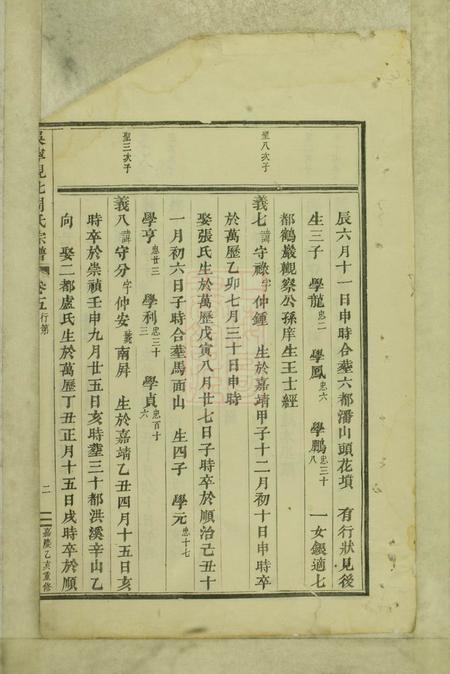 聖八次子
辰六月十一日申時合塟六都潘山頭花墳　有行狀見後
生三子　學龍忠二　學鳳忠六　學鵬忠三十八　一女銀適七
都鶴巖觀察公孫庠生王士經
義七諱守祿字仲鍾　生於嘉靖甲子十二月初十日申時卒
於萬歷乙卯七月三十日申時
娶張氏生於萬歷戊寅八月廿七日子時卒於順治己丑十
一月初六日子時合塟馬面山　生四子　學元忠十七
聖三次子
學亨忠廿三　學利忠三十三　學貞忠百十六
義八諱守分字仲安號南屏　生於嘉靖乙丑四月十五日亥
時卒於崇禎壬申九月廿五日亥時塟三十都洪溪辛山乙
向　娶二都盧氏生於萬歷丁丑正月十五日戌時卒於順
峴北周氏宗譜　卷五　行第　二　嘉慶乙亥重修